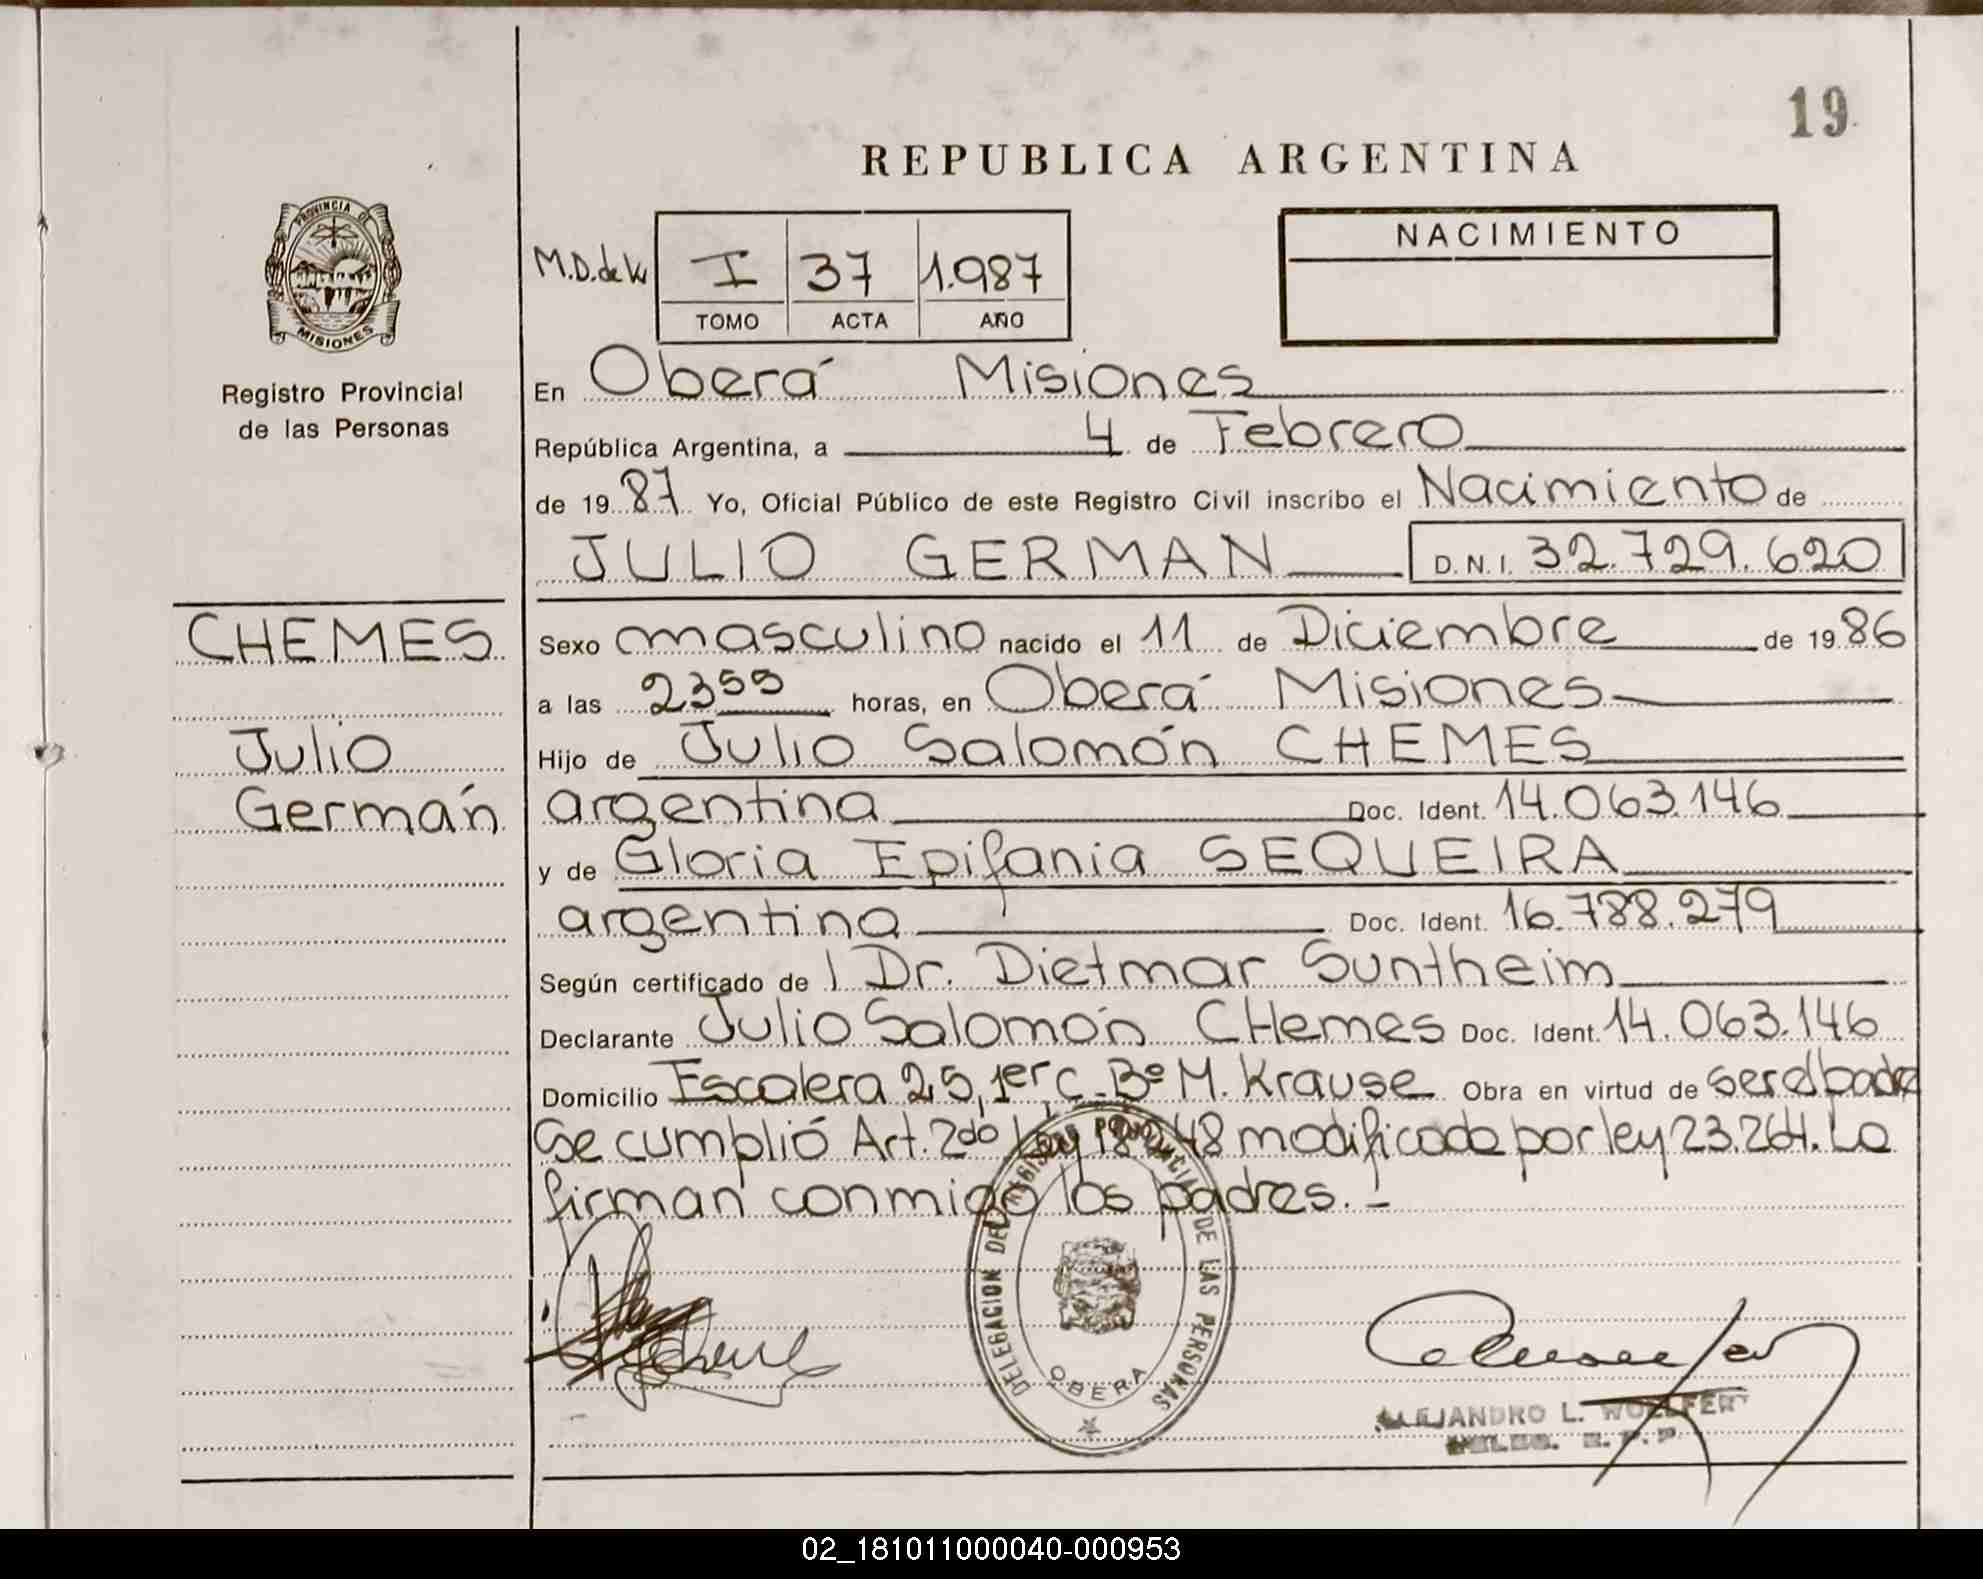 19
REPUBLICA ARGENTINA
PROVINCIA DE
MISIONES
Registro Provincial
de las Personas
M.D. de K
I 37 1.987
TOMO ACTA AÑO
NACIMIENTO
En Oberá Misiones
República Argentina, a 4 de Febrero
de 19 87 Yo, Oficial Público de este Registro Civil inscribo el Nacimiento de
JULIO GERMAN D.N.I. 32.729.620
CHEMES
Julio
Germán
Sexo masculino nacido el 11 de Diciembre de 19 86
a las 23 55 horas, en Oberá Misiones
Hijo de Julio Salomón CHEMES
argentina Doc. Ident. 14.063.146
y de Gloria Epifania SEQUEIRA
argentina Doc. Ident. 16.788.279
Según certificado de l Dr. Dietmar Suntheim
Declarante Julio Salomón CHemes Doc. Ident. 14.063.146
Domicilio Escalera 25, 1er C. Bº M. Krause Obra en virtud de ser el padre
Se cumplió Art. 2do ley 18248 modificada por ley 23.264. Lo
firman conmigo los padres.-
DELEGACION DEL REGISTRO PROVINCIAL DE LAS PERSONAS
OBERA
ALEJANDRO L. WOELFERT
02_181011000040-000953